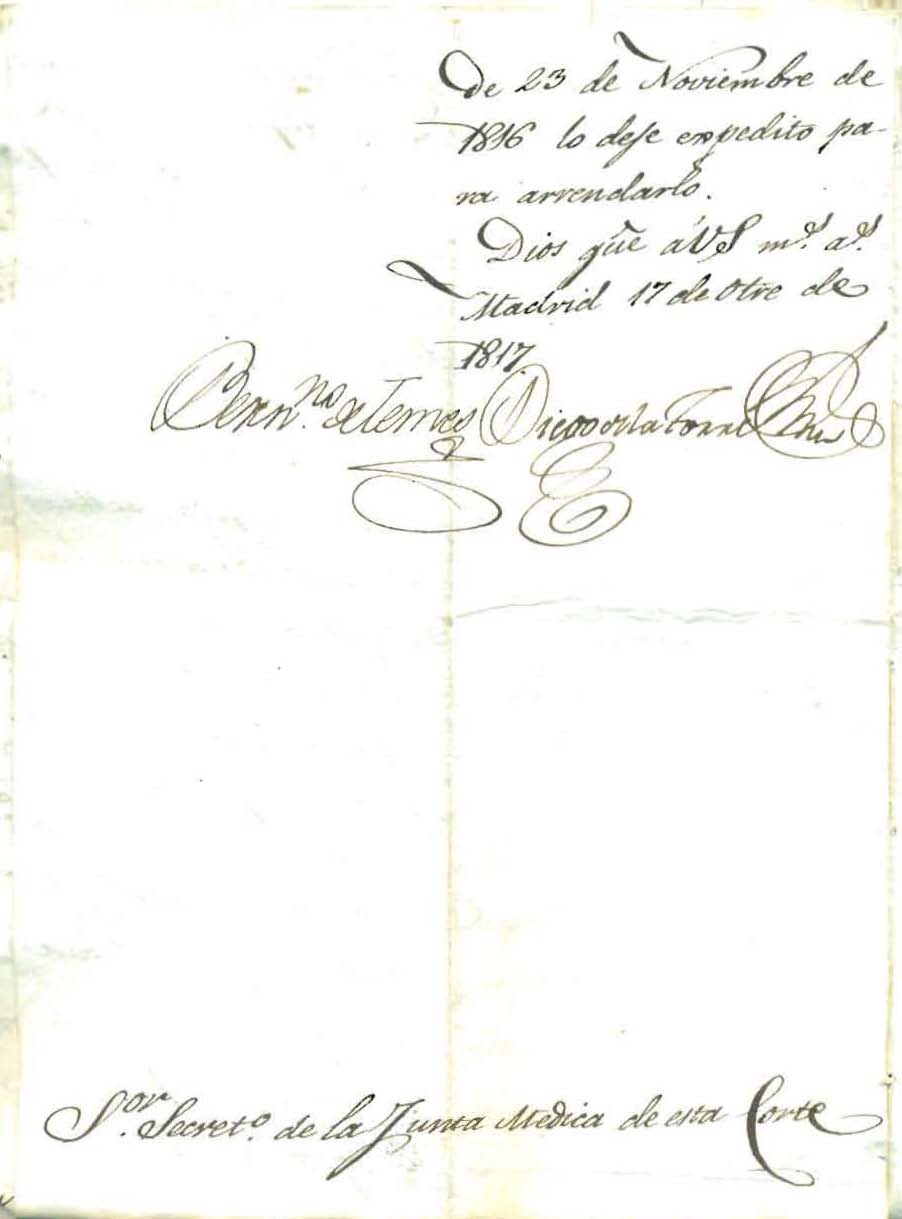 De 23 de Noviembre de
1816 lo deje expedito pa-
ra arrendarlo.
Dios gûe á VS m.s a.s
Madrid 17 de Otre de
1817
Bern.no de Temes Diego de la Torre
S.or Secret.o de la Junta Medica de esta Corte